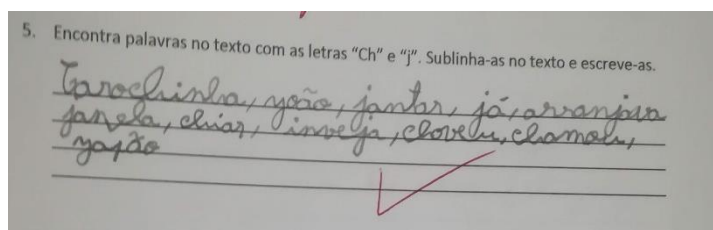 5. Encontra palavras no texto com as letras “Ch” e “j”. Sublinha-as no texto e escreve-as.
Carochinha, joão, jantar, já, arranjava
janela, chiar, inveja, choveu, chamou,